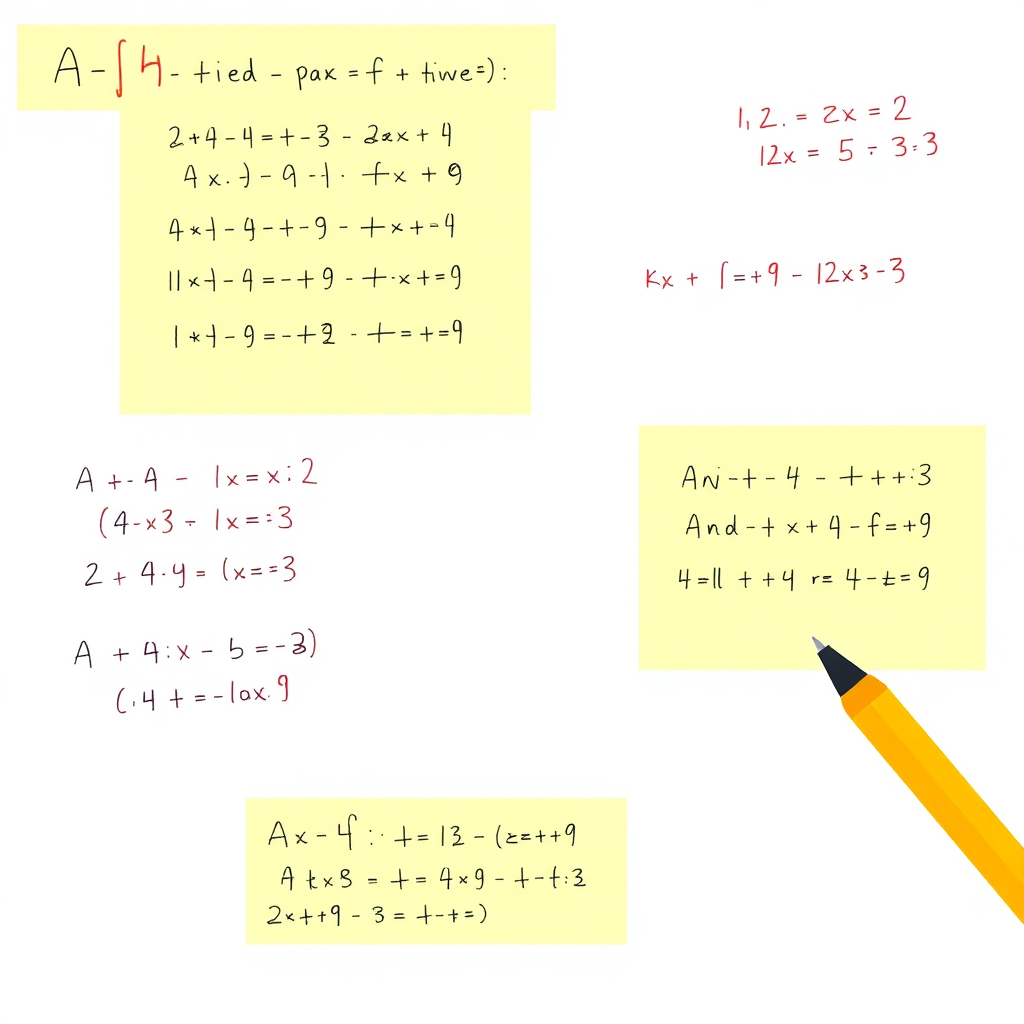 A-∫4-tied-pax=f+tiwe=):
2+4-4=+-3-2xx+4
4x.+)-9-1. +x+9
4*+-4-+-9-+x+=4
11x+-4=-+9-+·x+=9
1*+-9=-+2-+=+=9
1,2.=2x=2
12x=5÷3:3
Kx+∫=+9-12x3-3
A+-4-1x=x:2
(4-x3-1x=:3
2+4·y=(x==3
A+4:x-5=-3)
(.4+=-lox.9
Ani-+-4-+++:3
And-+x+4-f=+9
4=11++4r=4-±=9
Ax-4f:·+=13-(z=++9
Atx3=+=4x9-+-t:3
2x++9-3=+-+=)